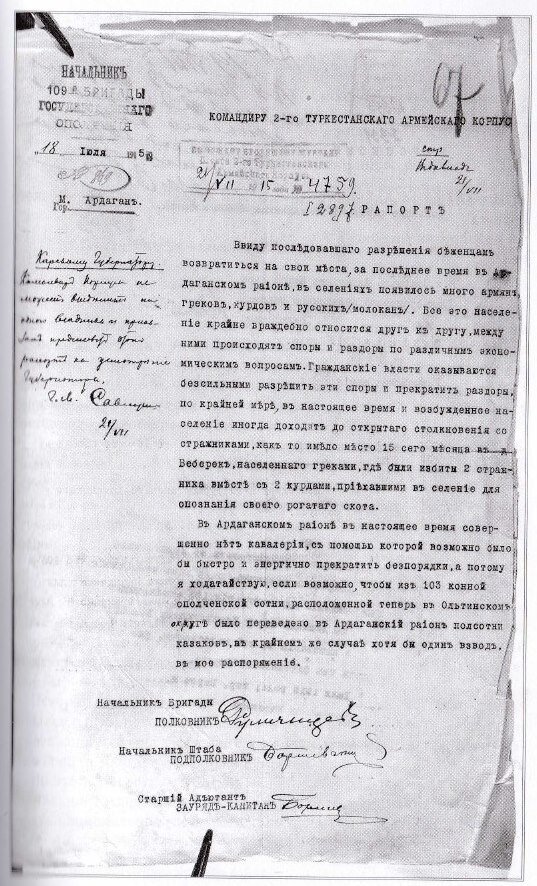 НАЧАЛЬНИКЪ
109 БРИГАДЫ
ГОСУДАРСТВЕННАГО
ОПОЛЧЕНІЯ
18 Іюля 1915
№ 969
Гор. М. Ардаганъ.
67
КОМАНДИРУ 2-го ТУРКЕСТАНСКАГО АРМЕЙСКАГО КОРПУС
21/VII 15 4759
21/VII
12897 РАПОРТЪ
Карскому Губернатору
Командиръ Корпуса не
Губернатора.
21/VII
Ввиду послѣдовавшаго разрѣшенія бѣженцамъ
возвратиться на свои мѣста, за послѣднее время въ Ар
даганскомъ раіонѣ, въ селеніяхъ появилось много армянъ,
грековъ, курдовъ и русскихъ/молоканъ/. Все это населе-
леніе крайне враждебно относится другъ къ другу, между
ними происходятъ споры и раздоры по различнымъ эконо-
мическимъ вопросамъ. Гражданскіе власти оказываются
безсильными разрѣшить эти споры и прекратить раздоры,
по крайней мѣрѣ, въ настоящее время и возбужденное на-
селеніе иногда доходятъ до открытаго столкновенія со
стражниками, какъ то имѣло мѣсто 15 сего мѣсяца въ
Беберек, населеннаго греками, гдѣ были избиты 2 страж-
ника вмѣстѣ съ 2 курдами, пріѣхавшими въ селеніе для
опознанія своего рогатаго скота.
Въ Ардаганскомъ раіонѣ въ настоящее время совер-
шенно нѣтъ кавалеріи, съ помощью которой возможно было
бы быстро и энергично прекратить безпорядки, а потому
я ходатайствую, если возможно, чтобы изъ 103 конной
ополченской сотни, расположенной теперь въ Ольтинскомъ
округѣ было переведено въ Ардаганскій раіонъ полсотни
казаковъ, въ крайнемъ же случаѣ хотя бы одинъ взводъ,
въ мое распоряженіе.
Начальникъ Бригады
ПОЛКОВНИКЪ
Начальникъ Штаба
ПОДПОЛКОВНИКЪ
Старшій Адъютантъ
ЗАУРЯДЪ-КАПИТАНЪ